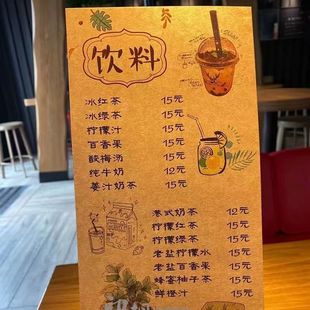 饮料
冰红茶 15元
冰绿茶 15元
柠檬汁 15元
百香果 15元
酸梅汤 15元
纯牛奶 12元
姜汁奶茶 15元
港式奶茶 12元
柠檬红茶 15元
柠檬绿茶 15元
老盐柠檬水 15元
老盐百香果 15元
蜂蜜柚子茶 15元
鲜橙汁 15元